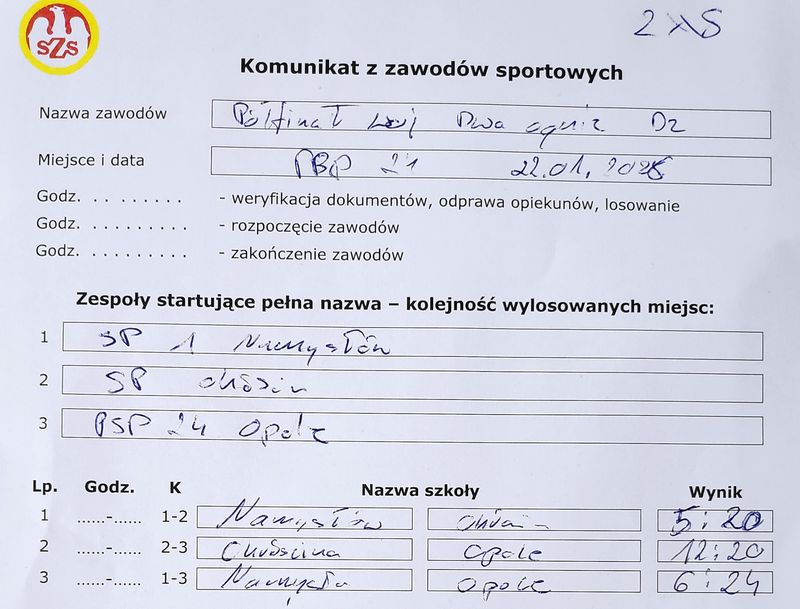 SZS
2 x S
Komunikat z zawodów sportowych
Nazwa zawodów Półfinał woj Dwa ognie Dz
Miejsce i data 22.01.2025
Godz. . . . . . . . . . - weryfikacja dokumentów, odprawa opiekunów, losowanie
Godz. . . . . . . . . . - rozpoczęcie zawodów
Godz. . . . . . . . . . - zakończenie zawodów
Zespoły startujące pełna nazwa – kolejność wylosowanych miejsc:
1 SP 1 Namysłów
2 SP
3 PSP 24 Opole
Lp. Godz. K Nazwa szkoły Wynik
1 ......-...... 1-2 Namysłów 5:20
2 ......-...... 2-3 Chróścina Opole 12:20
3 ......-...... 1-3 Opole 6:24